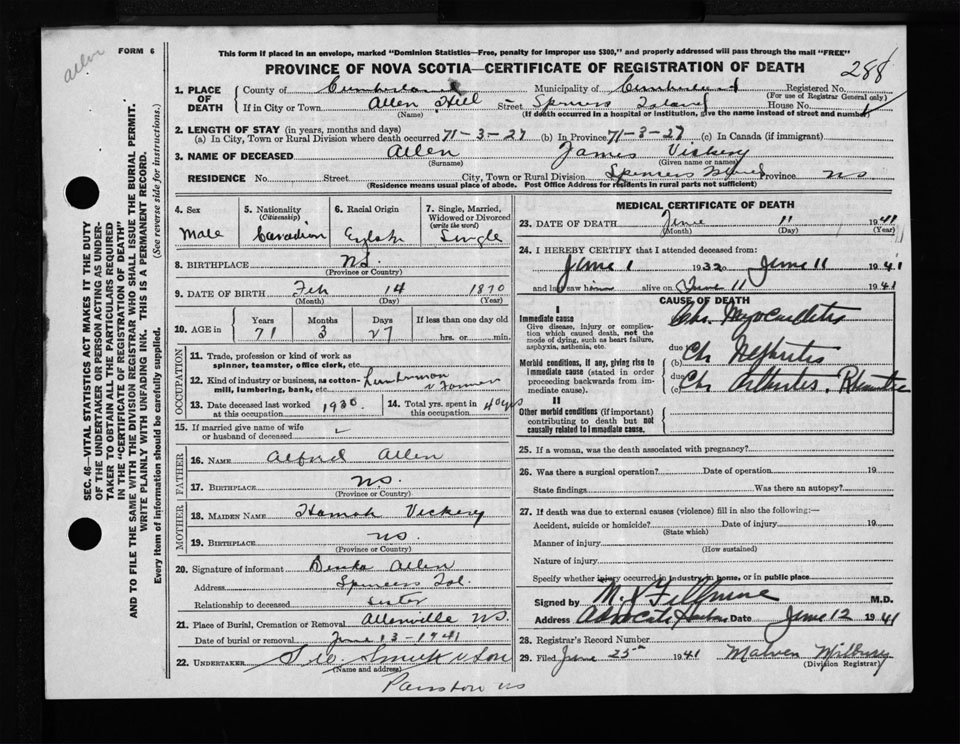 allen
FORM 6
This form if placed in an envelope, marked "Dominion Statistics—Free, penalty for improper use $300," and properly addressed will pass through the mail "FREE"
PROVINCE OF NOVA SCOTIA—CERTIFICATE OF REGISTRATION OF DEATH
288
SEC. 46—VITAL STATISTICS ACT MAKES IT THE DUTY
OF THE UNDERTAKER OR PERSON ACTING AS UNDER-
TAKER TO OBTAIN ALL THE PARTICULARS REQUIRED
IN THE "CERTIFICATE OF REGISTRATION OF DEATH"
AND TO FILE THE SAME WITH THE DIVISION REGISTRAR WHO SHALL ISSUE THE BURIAL PERMIT.
WRITE PLAINLY WITH UNFADING INK. THIS IS A PERMANENT RECORD.
Every item of information should be carefully supplied. (See reverse side for instructions.)
1. PLACE OF DEATH
County of Cumberland Municipality of Cumberland Registered No.
(For use of Registrar General only)
If in City or Town Allen Hill Street Spencers Island House No.
(Name) (If death occurred in a hospital or institution, give the name instead of street and number)
2. LENGTH OF STAY (in years, months and days)
(a) In City, Town or Rural Division where death occurred 71-3-27 (b) In Province 71-3-27 (c) In Canada (if immigrant)
3. NAME OF DECEASED Allen James Vickery
(Surname) (Given name or names)
RESIDENCE No. Street City, Town or Rural Division Spencers Island Province NS
(Residence means usual place of abode. Post Office Address for residents in rural parts not sufficient)
4. Sex
Male
5. Nationality
(Citizenship)
Canadian
6. Racial Origin
English
7. Single, Married,
Widowed or Divorced
(write the word)
Single
8. BIRTHPLACE N.S.
(Province or Country)
9. DATE OF BIRTH Feb 14 1870
(Month) (Day) (Year)
10. AGE in
Years Months Days If less than one day old
71 3 27 hrs. or min.
OCCUPATION
11. Trade, profession or kind of work as
spinner, teamster, office clerk, etc.
12. Kind of industry or business, as cotton-
mill, lumbering, bank, etc. Lumberman
& Farmer
13. Date deceased last worked
at this occupation 1930
14. Total yrs. spent in
this occupation 40 yrs
15. If married give name of wife
or husband of deceased
FATHER
16. NAME Alford Allen
17. BIRTHPLACE N.S.
(Province or Country)
MOTHER
18. MAIDEN NAME Hannah Vickery
19. BIRTHPLACE NS
(Province or Country)
20. Signature of informant Allen
Address Spencers Isl.
Relationship to deceased sister
21. Place of Burial, Cremation or Removal Allenville NS.
Date of burial or removal June 13-1941
22. UNDERTAKER Smith & Son
(Name and address)
NS
MEDICAL CERTIFICATE OF DEATH
23. DATE OF DEATH June 11 1941
(Month) (Day) (Year)
24. I HEREBY CERTIFY that I attended deceased from:
June 1 1932 to June 11 1941
and last saw him alive on June 11 1941
CAUSE OF DEATH
I
Immediate cause
Give disease, injury or complica-
tion which caused death, not the
mode of dying, such as heart failure,
asphyxia, asthenia, etc.
Chr. Myocarditis
Morbid conditions, if any, giving rise to
immediate cause (stated in order
proceeding backwards from im-
mediate cause).
due
(b) Ch Nephritis
due
(c) Ch Arthritis. Rheumatic
II
Other morbid conditions (if important)
contributing to death but not
causally related to immediate cause.
25. If a woman, was the death associated with pregnancy?
26. Was there a surgical operation? Date of operation 19
State findings Was there an autopsy?
27. If death was due to external causes (violence) fill in also the following:—
Accident, suicide or homicide? Date of injury 19
(State which)
Manner of injury
(How sustained)
Nature of injury
Specify whether injury occurred in industry, in home, or in public place
Signed by Fillmore M.D.
Address Advocate Harbor Date June 12 1941
28. Registrar's Record Number
29. Filed June 25th 1941
(Division Registrar)